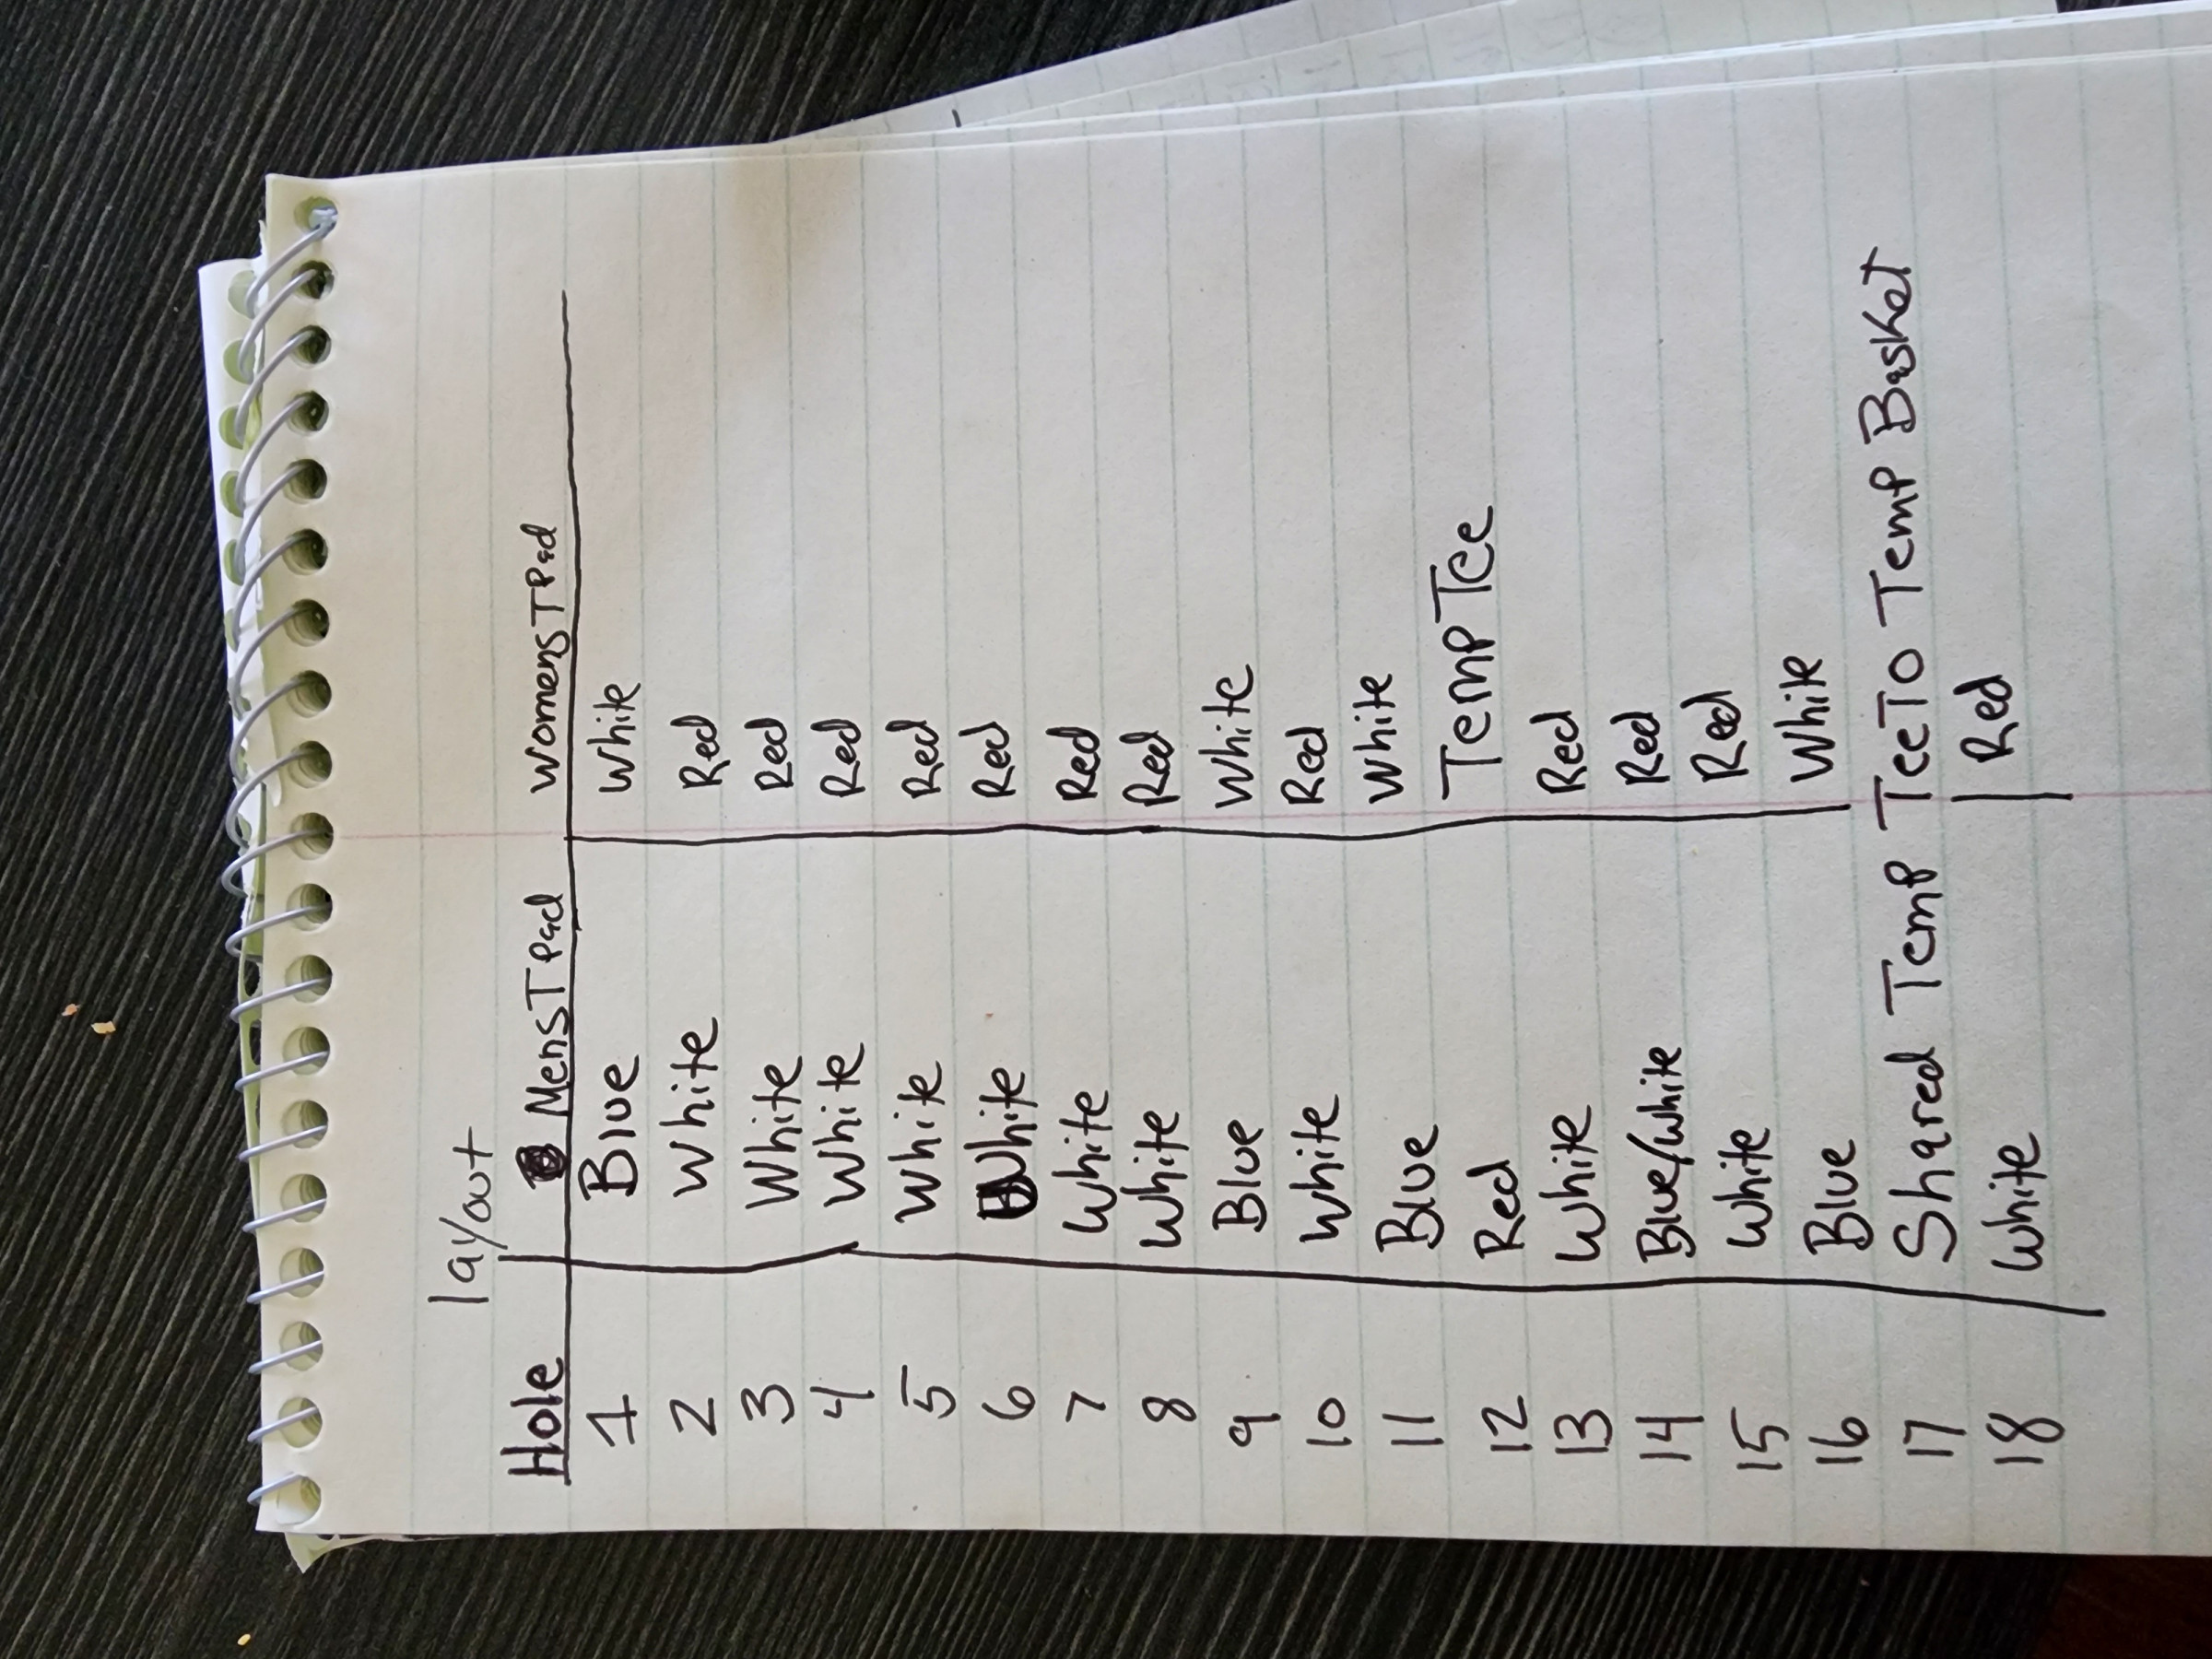 layout
Hole MensTPad WomensTPad
1 Blue White
2 White Red
3 White Red
4 White Red
5 White Red
6 White Red
7 White Red
8 White Red
9 Blue White
10 White Red
11 Blue White
12 Red Temp Tee
13 White Red
14 Blue/White Red
15 White Red
16 Blue White
17 Shared Temp Tee To Temp Basket
18 White Red